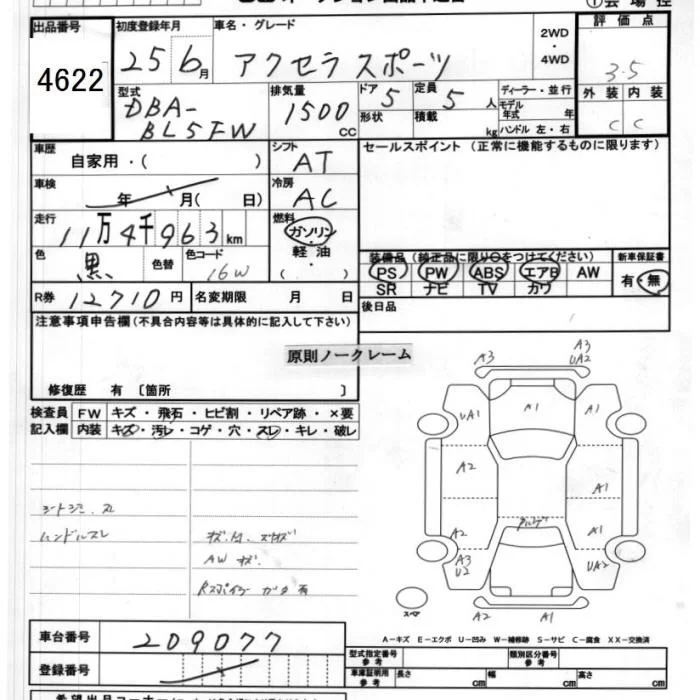 出品番号 4622
初度登録年月 25 6月
車名・グレード アクセラスポーツ
2WD・4WD
評価点 3.5
外装 内装
C C
型式 DBA-BL5FW
排気量 1500 CC
ドア 5 定員 5 人
形状 積載 kg
ディーラー・並行
モデル年式 年
ハンドル 左・右
車歴 自家用・( )
シフト AT
セールスポイント(正常に機能するものに限ります)
車検 年 月( 日)
冷房 AC
走行 11万4千963km
燃料 ガソリン・軽油・( )
色 黒 色替 色コード 16W
装備品(純正品に限り○をつけてください)
PS PW ABS エアB AW
SR ナビ TV カワ
新車保証書 有・無
R券 12710円 名変期限 月 日
後日品
注意事項申告欄(不具合内容等は具体的に記入して下さい)
原則ノークレーム
修復歴 有 〔箇所 〕
検査員記入欄
FW キズ・飛石・ヒビ割・リペア跡・×要
内装 キズ・汚レ・コゲ・穴・スレ・キレ・破レ
ハンドルスレ
AW キズ
A3 A3 UA2
UA1 A1 A1
A2 A1
A2 A1
A3 U2 UA2
A2 A1
スペア
車台番号 209077
登録番号
A-キズ E-エクボ U-凹み W-補修跡 S-サビ C-腐食 XX-交換済
型式指定番号 参考 類別区分番号 参考
車庫証明用 参考 長さ cm 幅 cm 高さ cm